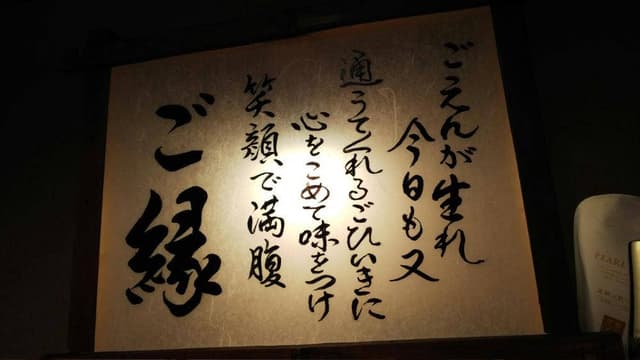 ごえんが生れ
今日も又
通うてくれるごひいきに
心をこめて味をつけ
笑顔で満腹
ご縁
PEARL